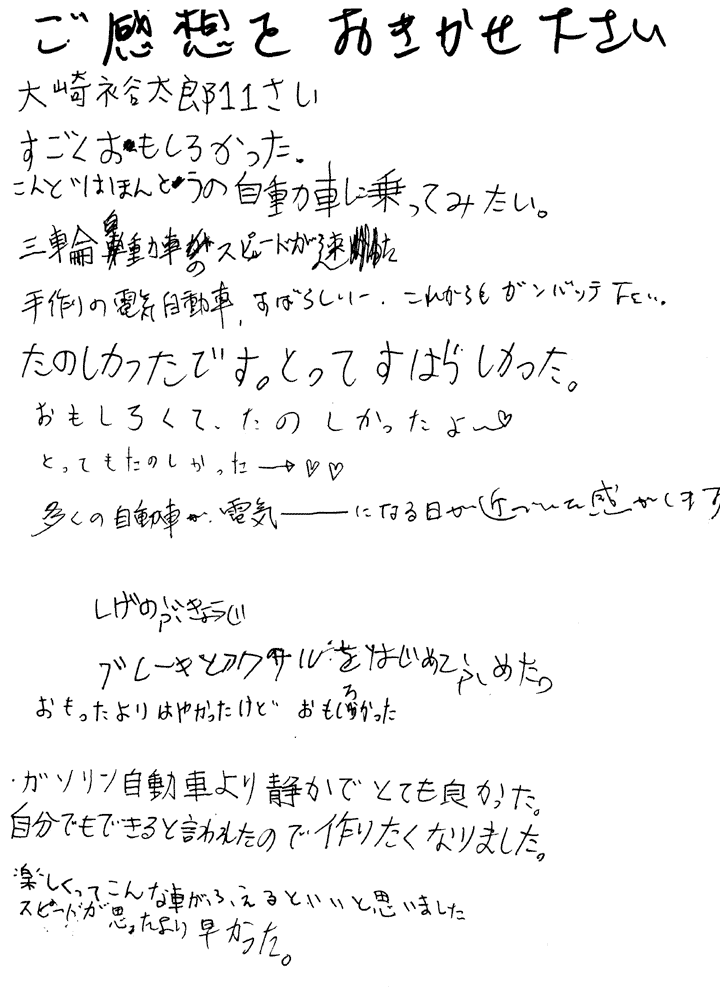 ご感想をおきかせ下さい
大崎裕太郎11さい
すごくおもしろかった。
こんどはほんとうの自動車に乗ってみたい。
三輪自動車のスピードが速
手作りの電気自動車、すばらしいー。これからもガンバッテ下さい。
たのしかったです。とってすばらしかった。
おもしろくて、たのしかったよ〜♡
とってもたのしかった→♡♡
多くの自動車が、電気――になる日が近づいた感がします
しげの
ブレーキとアクサルをはじめてふめた。
おもったよりはやかったけど おもしろかった
・ガソリン自動車より静かでとても良かった。
自分でもできると言われたので作りたくなりました。
楽しくってこんな車がふえるといいと思いました
スピードが思ったより早かった。